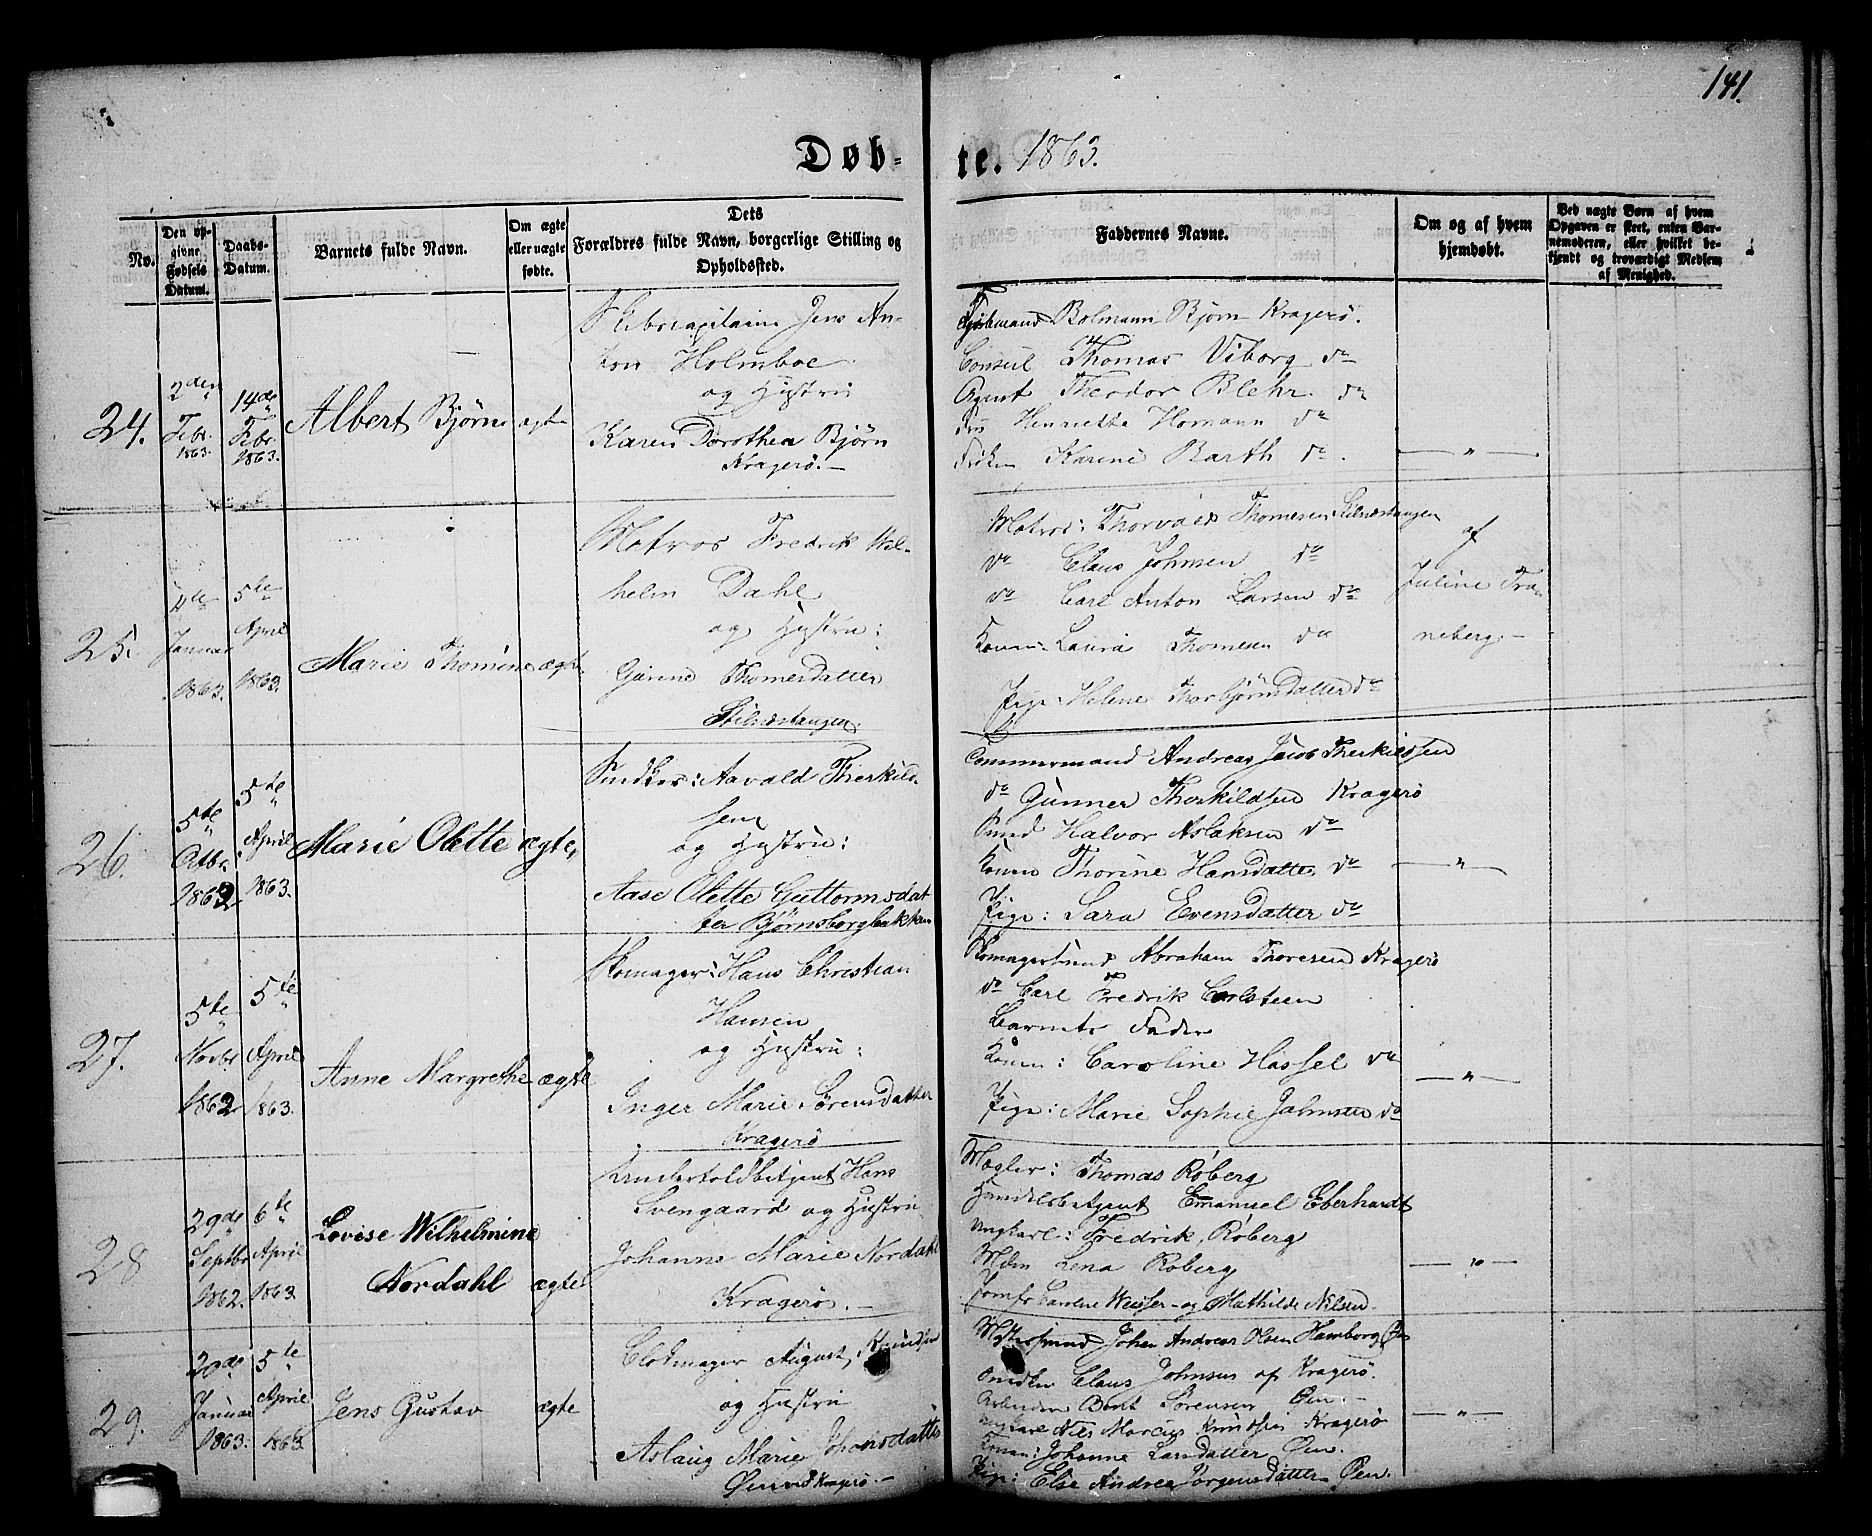 141.
Døb- te. 1863.
No.
Den opgivne Fødsels Datum.
Daabs-Datum.
Barnets fulde Navn.
Om ægte eller uægte fødte.
Dets Forældres fulde Navn, borgerlige Stilling og Opholdssted.
Faddernes Navne.
Om og af hvem hjemdøbt.
Ved uægte Børn af hvem Opgaven er skeet, enten Barnemoderen, eller hvilket bekjendt og troværdigt Medlem af Menighed.
24.
2den Febr. 1863.
14de Febr. 1863.
Albert Bjørn
ægte
Skibscapitain Jens An-
ton Holmboe
og Hustru
Karen Dorothea Bjørn
Kragerø.-
Bolmann Bjørn Kragerø.
Consul Thomas Viborg do
Agent Theodor Blehr. do
Henriette Homann do
Frøken Karine Barth do.
— " —
25.
Januar 1863.
5te April 1863.
Marie Thomine
ægte
Matros Fredrik Wil-
helm Dahl
og Hustru:
Gurine Thomesdatter
Stilnæstangen.
Matros: Thorvald Thomesen Stilnæstangen
do Claus Johnsen do
do Carl Anton Larsen do
Konen: Laura Thomesen do
Pige: Helene Thorbjørnsdatter do
af
Juline Tra-
neberg.-
26.
5te Octbr. 1862
5te April 1863.
Marie Olette
ægte,
Snedker: Aavald Therkild-
sen
og Hustru:
Aase Olette Guttormsdat
ter Bjørnsborgbakken
Tømmermand Andreas Jacob Therkildsen
do Gunner Therkildsen Kragerø
Halvor Aslaksen do
Konen Thorine Hansdatter do
Pige: Sara Evensdatter do
— " —
27.
5te Novbr 1862
5te April 1863.
Anne Margrethe
ægte
Skomager: Hans Christian
Hansen
og Hustru:
Inger Marie Sørensdatter
Kragerø
Skomagersvend Abraham Thoresen Kragerø
do Carl Fredrik Carlsteen
Barnets Fader
Konen: Caroline Hassel do
Pige: Marie Sophie Johnsen do
— " —
28
29de Septbr 1862.
6te April 1863.
Lovise Wilhelmine
Nordahl
ægte
Undertoldbetjent Hans
Svengaard og Hustru
Johanne Marie Nordahl
Kragerø.-
Mægler: Thomas Røberg
Emanuel Eberhardt
Ungkarl: Fredrik Røberg
Mdm Lena Røberg
Jomfr Caroline Weisser og Mathilde Nilsen.
— " —
29.
20de Januar 1863.
5te April 1863.
Jens Gustav
ægte
August Knudsen
og Hustru
Aslaug Marie Thomsdatter
Øen ved Kragerø.-
Johan Andreas Olsen Hamborg Øen
Snedker Claus Johnsen af Kragerø.
Arbeider Bent Sørensen Øen.-
Ungkarl Nils Marcus Knudsen Kragerø
Konen: Johanne Larsdatter Øen.
Pige: Else Andrea Jørgensdatter Øen.
— " —